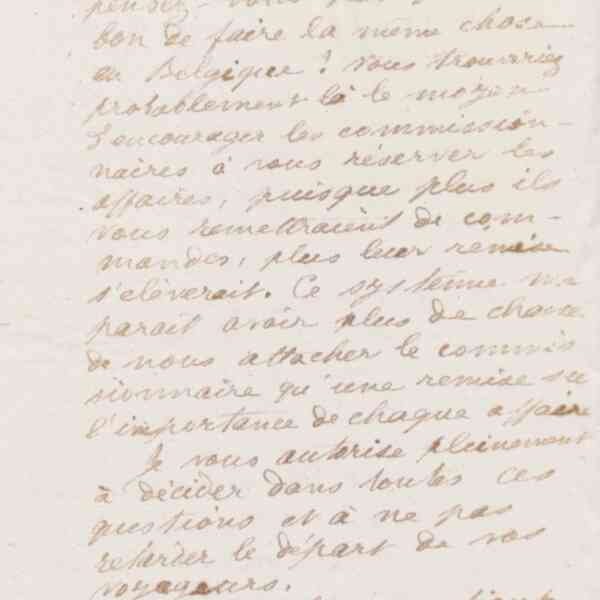 pensez-vous
bon de faire la même chose
en Belgique? Vous trouveriez
probablement là le moyen
d'encourager les commission-
naires à vous réserver les
affaires, puisque plus ils
vous remettraient de com-
mandes, plus leur remise
s'elèverait. Ce système me
parait avoir plus de chance
de nous attacher le commis
sionnaire qu'une remise su
l'importance de chaque affaire
Je vous autorise pleinement
à décider dans toutes ces
questions et à ne pas
retarder le départ de vos
voyageurs.